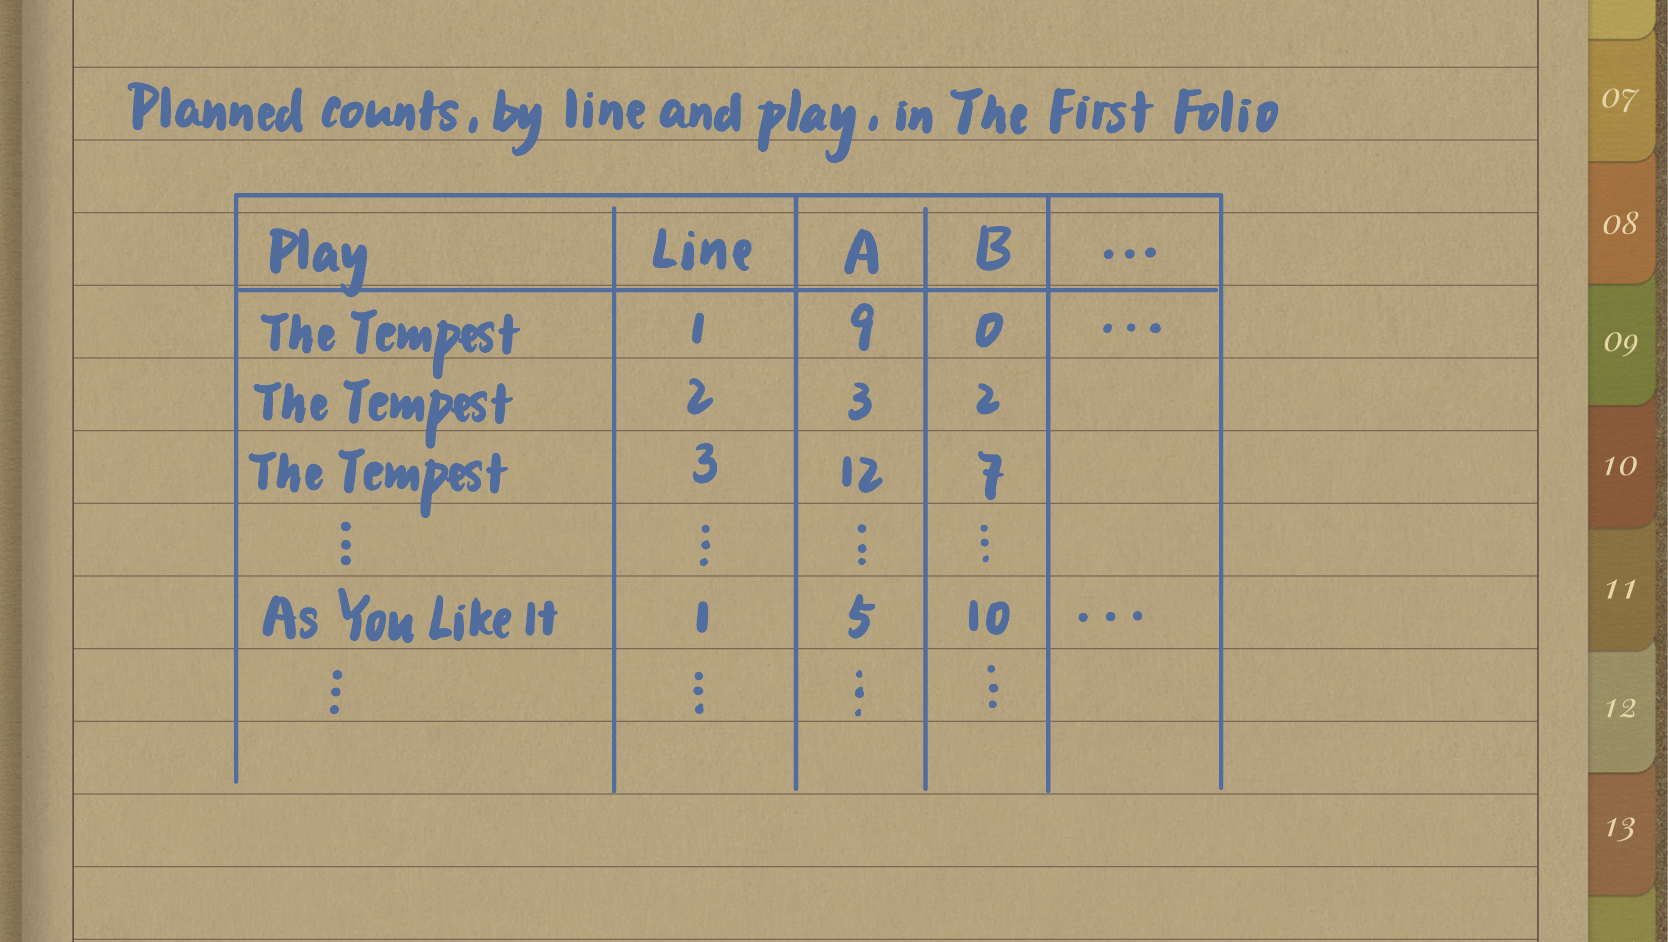 Planned counts, by line and play, in The First Folio
Play Line A B ...
The Tempest 1 9 0 ...
The Tempest 2 3 2
The Tempest 3 12 7
As You Like It 1 5 10 ...
07
08
09
10
11
12
13